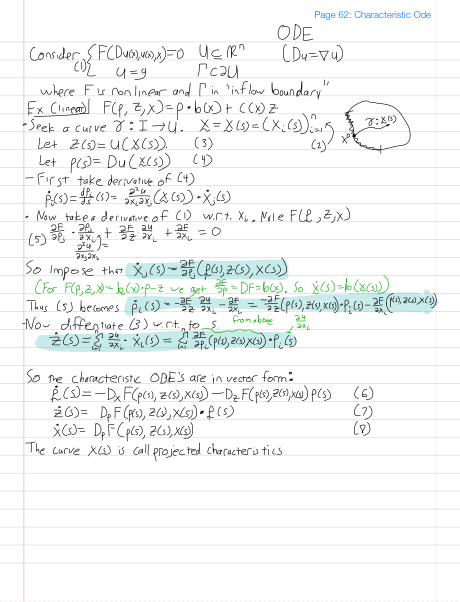 Page 62: Characteristic Ode
ODE
Consider { F(Du(x),u(x),x)=0 U⊆ℝⁿ (Du=∇u)
(1) { u=g Γ⊂∂U
where F is nonlinear and Γ in "inflow boundary"
Ex (linear) F(p, z, x)=p·b(x)+c(x)z
• Seek a curve γ: I→U. X=X(s)=(Xᵢ(s))ⁿᵢ₌₁ (2)
γ: X(s)
X⁰
Let z(s)=u(X(s)). (3)
Let p(s)=Du(X(s)) (4)
– First take derivative of (4)
ṗᵢ(s)=dpᵢ/ds(s)= ∂²u/∂xᵢ∂xⱼ (X(s))·Ẋⱼ(s)
• Now take a derivative of (1) w.r.t. xᵢ. Note F(p, z, x)
(5) ∂F/∂pⱼ · ∂pⱼ/∂xᵢ + ∂F/∂z ∂u/∂xᵢ + ∂F/∂xᵢ = 0
∂²u/∂xⱼ∂xᵢ =
So impose that Ẋⱼ(s)=∂F/∂pⱼ(p(s),z(s),X(s))
(For F(p,z,x)=b(x)·p-z we get ∂F/∂p=DF=b(x). So ẋ(s)=b(X(s)))
Thus (5) becomes ṗᵢ(s)= -∂F/∂z ∂u/∂xᵢ - ∂F/∂xᵢ = -∂F/∂z(p(s),z(s),X(s))·pᵢ(s) - ∂F/∂xᵢ(p(s),z(s),X(s))
– Now diffentiate (3) w.r.t. to s from above ∂u/∂xᵢ
ż(s)=Σⁿᵢ₌₁ ∂u/∂xᵢ · Ẋᵢ(s)=Σⁿᵢ₌₁ ∂F/∂pᵢ(p(s),z(s),X(s))·pᵢ(s)
So the characteristic ODE's are in vector form:
ṗ(s)=-DₓF(p(s), z(s),X(s))-D_zF(p(s),z(s),X(s))p(s) (6)
ż(s)= DₚF(p(s), z(s), X(s))·p(s) (7)
ẋ(s)= DₚF(p(s), z(s), X(s)) (8)
The curve X(s) is call projected characteristics